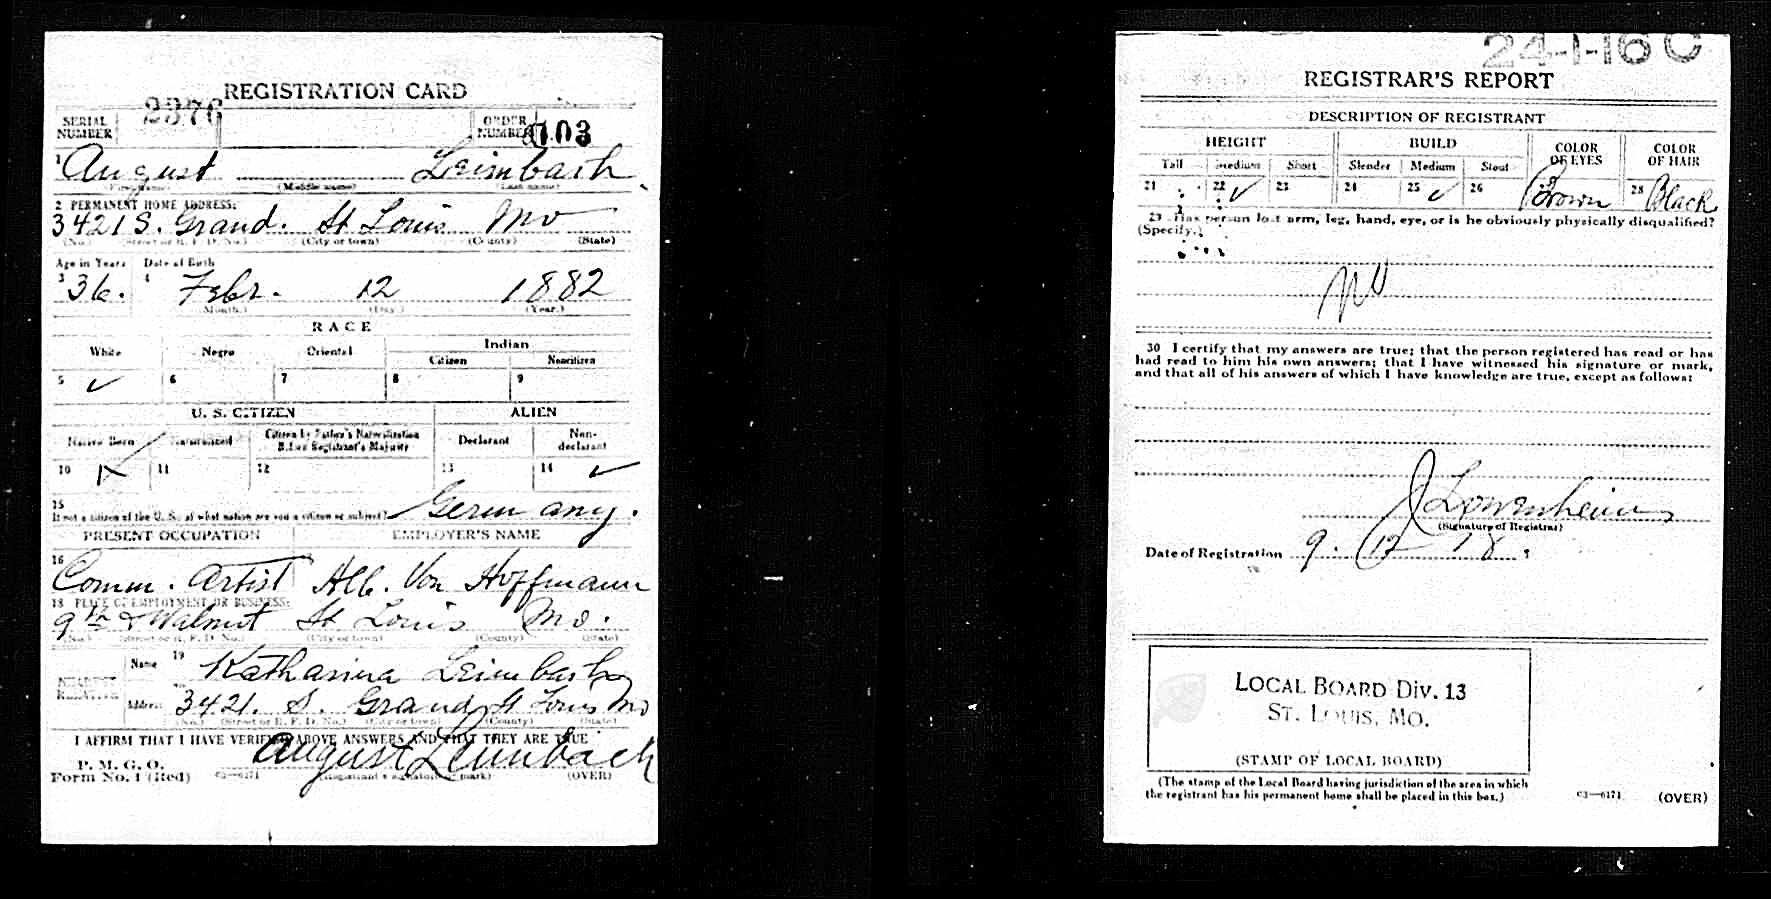 REGISTRATION CARD
SERIAL NUMBER 2376 ORDER NUMBER 103
1 August Leimbach
(First name) (Middle name) (Last name)
2 PERMANENT HOME ADDRESS:
3421 S. Grand. St Louis Mo
(No.) (Street or R. F. D. No.) (City or town) (County) (State)
Age in Years Date of Birth
3 36. 4 Febr. 12 1882
(Month.) (Day.) (Year.)
RACE
White Negro Oriental Indian
Citizen Noncitizen
5 ✓ 6 7 8 9
U. S. CITIZEN ALIEN
Native Born Naturalized Citizen by Father's Naturalization Before Registrant's Majority Declarant Non-declarant
10 11 12 13 14 ✓
15
If not a citizen of the U. S., of what nation are you a citizen or subject? Germany.
PRESENT OCCUPATION EMPLOYER'S NAME
16 Comm. Artist Alb. Von Hoffmann
18 PLACE OF EMPLOYMENT OR BUSINESS:
9th & Walnut St Louis Mo.
(No.) (Street or R. F. D. No.) (City or town) (County) (State)
NEAREST RELATIVE Name 19 Katharina Leimbach
Address 3421. S. Grand St Louis Mo
(No.) (Street or R. F. D. No.) (City or town) (County) (State)
I AFFIRM THAT I HAVE VERIFIED ABOVE ANSWERS AND THAT THEY ARE TRUE
P. M. G. O.
Form No. 1 (Red) 03—6171 August Leimbach (Registrant's signature or mark) (OVER)
24-1-16 C
REGISTRAR'S REPORT
DESCRIPTION OF REGISTRANT
HEIGHT BUILD COLOR OF EYES COLOR OF HAIR
Tall Medium Short Slender Medium Stout
21 22 ✓ 23 24 25 ✓ 26 Brown 28 Black
29 Has person lost arm, leg, hand, eye, or is he obviously physically disqualified?
(Specify.)
No
30 I certify that my answers are true; that the person registered has read or has
had read to him his own answers; that I have witnessed his signature or mark,
and that all of his answers of which I have knowledge are true, except as follows:
(Signature of Registrar)
Date of Registration 9. 12 18.
LOCAL BOARD DIV. 13
ST. LOUIS, MO.
(STAMP OF LOCAL BOARD)
(The stamp of the Local Board having jurisdiction of the area in which
the registrant has his permanent home shall be placed in this box.)
03—6171 (OVER)